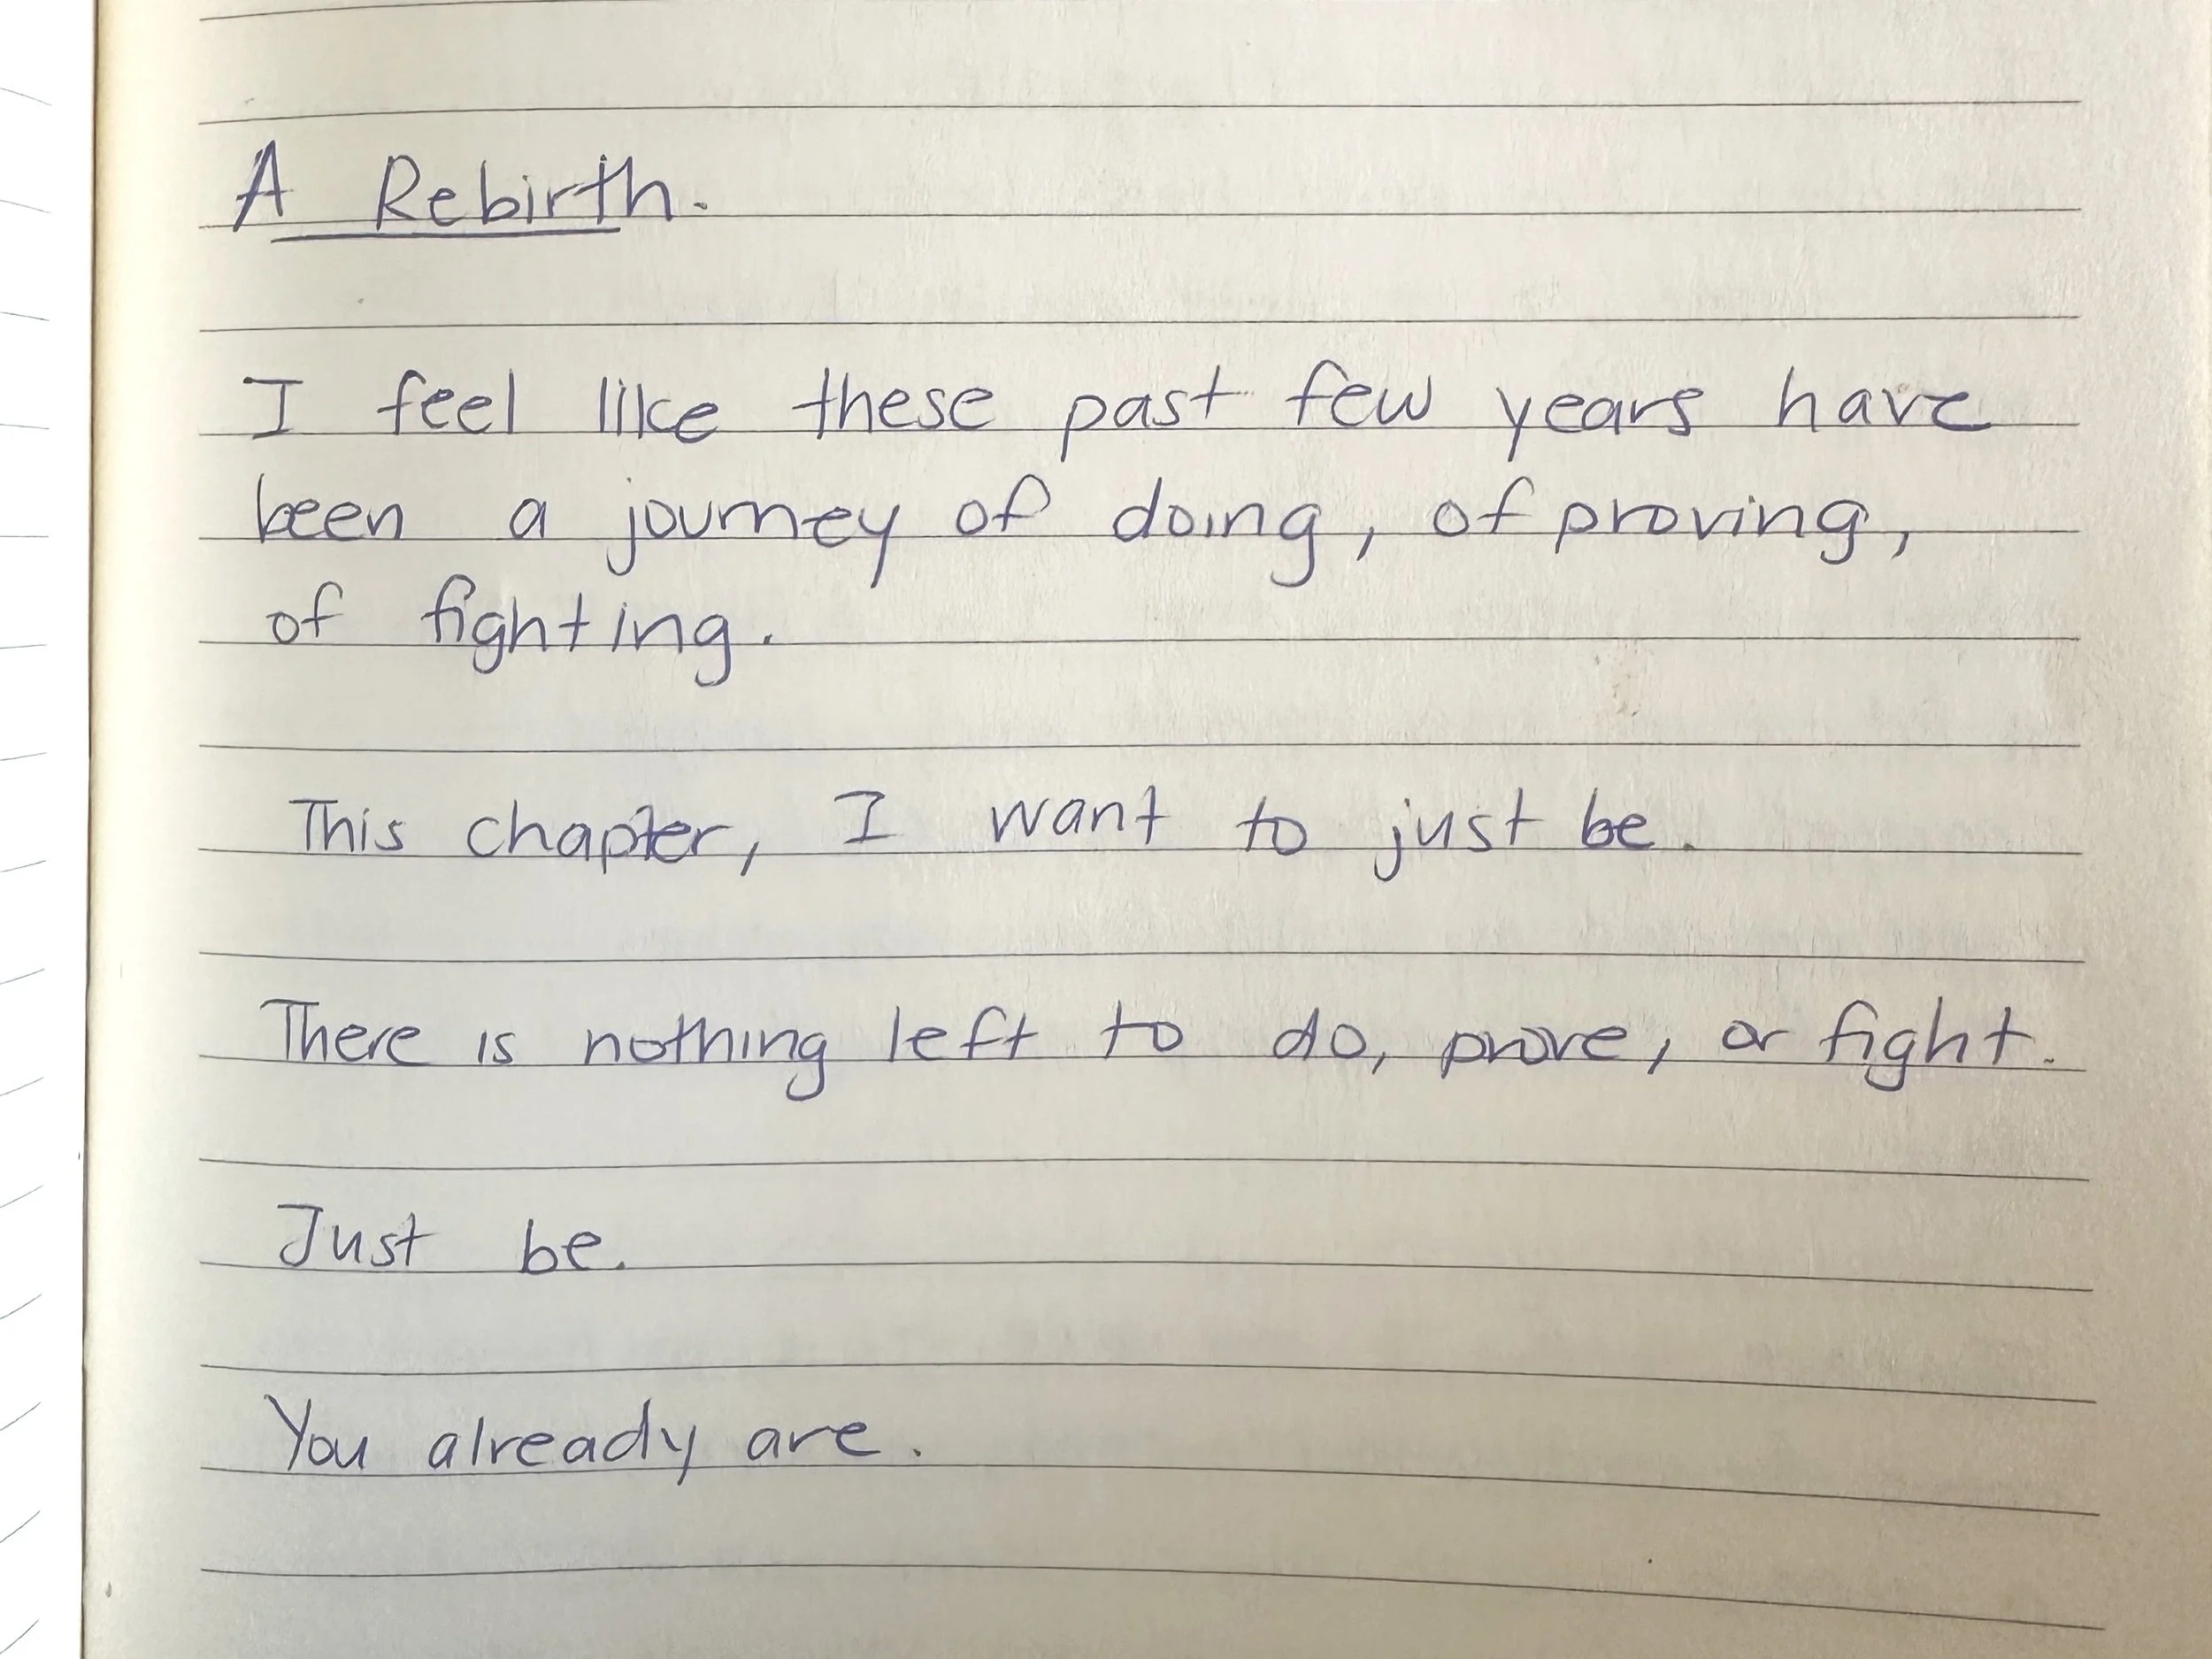 A Rebirth.
I feel like these past few years have
been a journey of doing, of proving,
of fighting.
This chapter, I want to just be.
There is nothing left to do, prove, or fight.
Just be.
You already are.